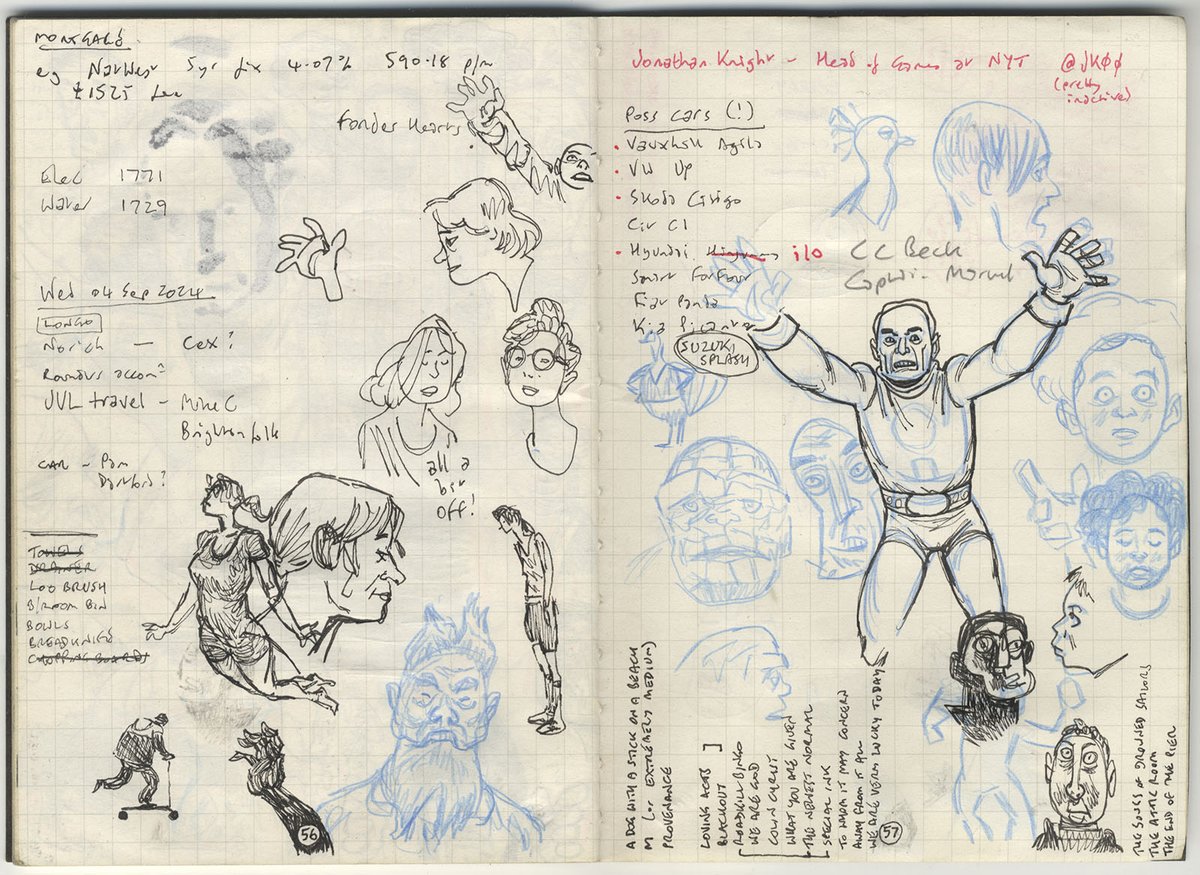 MORTGAGE
eg NatWest 5yr fix 4.07% 590.18 p/m
£1525 fee
Fonder Hearts
Elec 1771
Water 1729
Wed 04 Sep 2024
LONGO
Norich — Cex?
Roundus accom?
JVL travel – Mike C
Brighton folk
CAR – Pam
all a
bit
off!
TOWELS
DRAINER
LOO BRUSH
B/ROOM BIN
BOWLS
BREADKNIFE
CHOPPING BOARDS
56
Jonathan Knight – Head of Games at NYT @JK00
(pretty
inactive)
Poss cars (!)
Vauxhall Agila
VW Up
Skoda Citigo
Cit C1
Hyundai i10
Smart ForFour
Fiat Panda
Kia Picanto
SUZUKI
SPLASH
CC Beck
Captain Marvel
A DOG WITH A STICK ON A BEACH
M (OR EXTREMELY MEDIUM)
PROVENANCE
LOVING ACTS
BLACKOUT
ROADKILL BINGO
WE ARE GOD
COWN CYRST
WHAT YOU ARE GIVEN
THE NEWEST NORMAL
SPECIAL INK
TO WHOM IT MAY CONCERN
AWAY FROM IT ALL
WE ARE VERY LUCKY TODAY
57
THE SONGS OF DROWNED SAILORS
THE ATTIC ROOM
THE END OF THE PIER